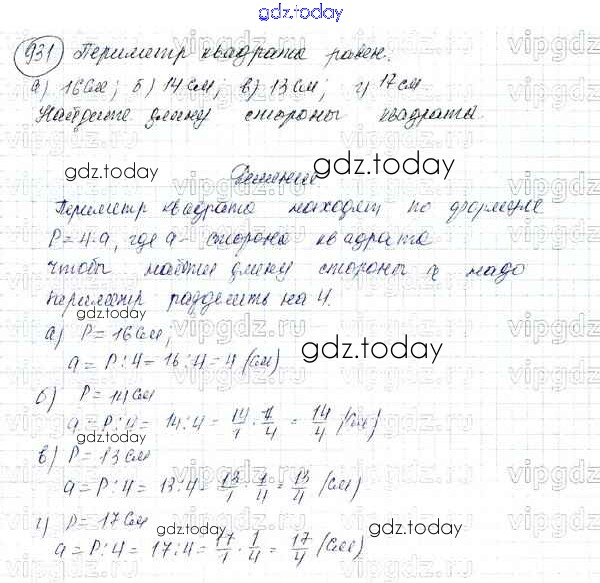 gdz.today
931 Периметр квадрата равен.
а) 16см; б) 14см; в) 13см; г) 17см
Найдите длину стороны квадрата.
gdz.today
gdz.today
Решение
Периметр квадрата находят по формуле
P=4·a, где a- сторона квадрата
чтобы найти длину стороны a надо
периметр разделить на 4.
а) P=16см,
a=P:4=16:4=4 (см)
gdz.today
б) P=14см
a=P:4= 14:4= 14/1 · 1/4 = 14/4 (см)
gdz.today
gdz.today
в) P=13см
a=P:4= 13:4= 13/1 · 1/4 = 13/4 (см)
г) P=17см
gdz.today
gdz.today
a=P:4=17:4= 17/1 · 1/4 = 17/4 (см)